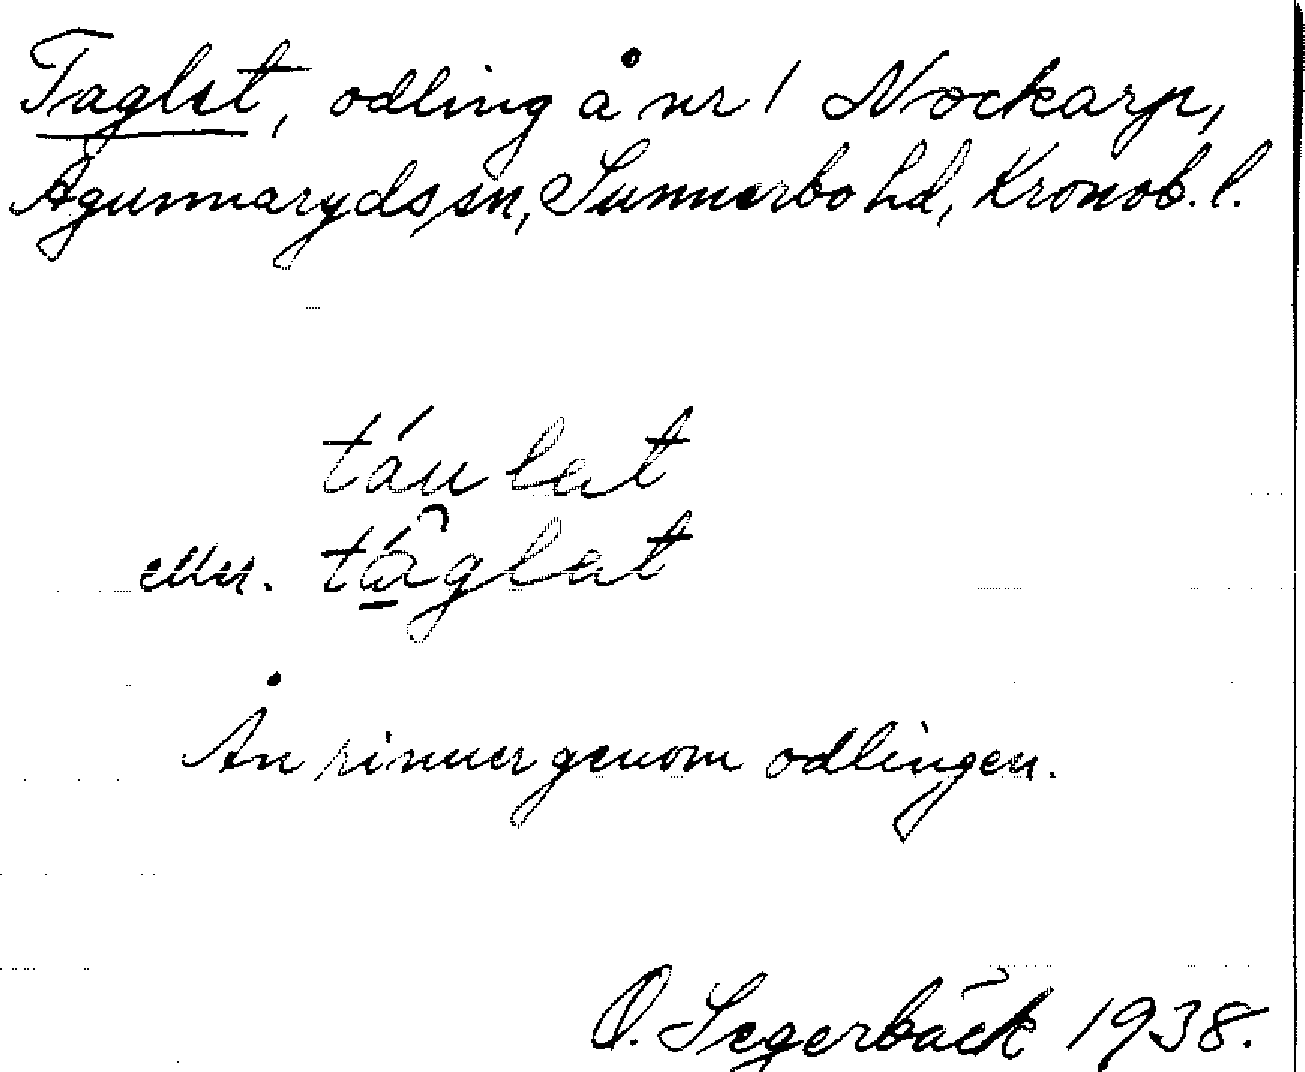 Taglet, odling å nr 1 Nockarp,
Agunnaryds sn, Sunnerbo hd, Kronob. l.
táulat
eller. táglat
Ån rinner genom odlingen.
O. Segerbäck 1938.